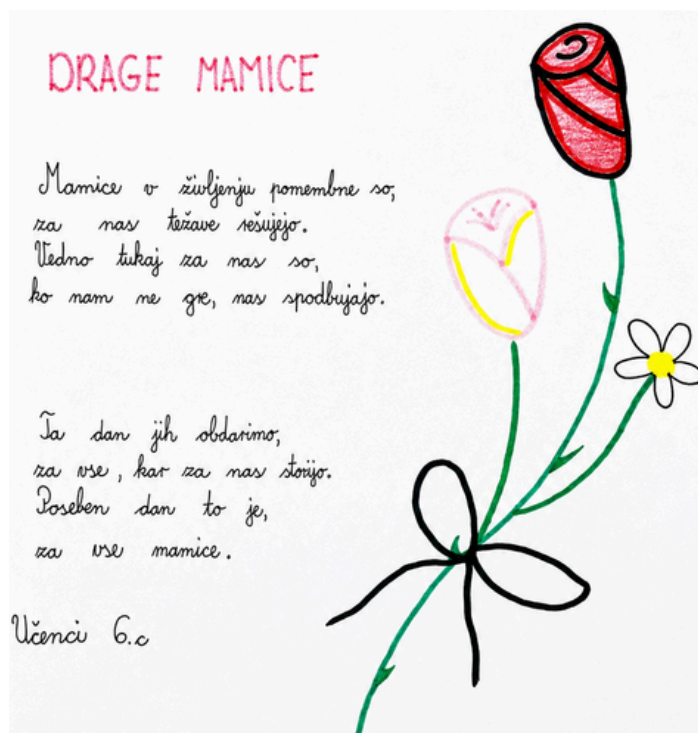 DRAGE MAMICE
Mamice v življenju pomembne so,
za nas težave rešujejo.
Vedno tukaj za nas so,
ko nam ne gre, nas spodbujajo.
Ta dan jih obdarimo,
za vse, kar za nas storijo.
Poseben dan to je,
za vse mamice.
Učenci 6.c